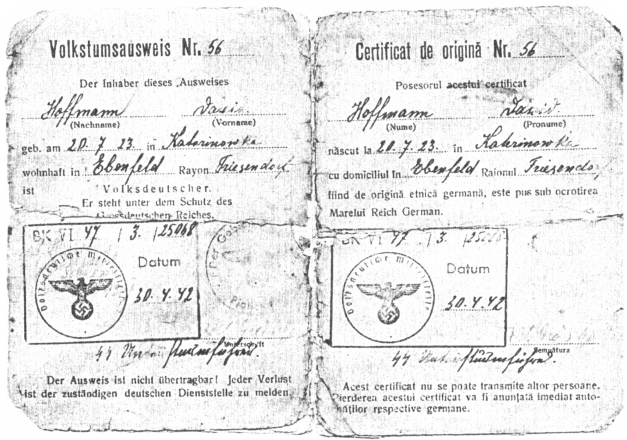 Volkstumsausweis Nr. 56
Der Inhaber dieses Ausweises
Hoffmann David
(Nachname) (Vorname)
geb. am 20. 7. 23. in Katerinowka
wohnhaft in Ebenfeld Rayon Friesendorf
ist Volksdeutscher.
Er steht unter dem Schutz des
Grossdeutschen Reiches.
BK VI 47 / 3. / 25068
Volksdeutsche Mittelstelle
Datum
30. 4. 42
Unterschrift
Untersturmführer.
Der Ausweis ist nicht übertragbar! Jeder Verlust
ist der zuständigen deutschen Dienststelle zu melden.
Certificat de origină Nr. 56
Posesorul acestui certificat
Hoffmann David
(Nume) (Pronume)
născut la 20. 7. 23. în Katerinowka
cu domiciliul în Ebenfeld Raionul Friesendorf
fiind de origină etnică germană, este pus sub ocrotirea
Marelui Reich German.
BK VI 47. / 3. / 25068
Volksdeutsche Mittelstelle
Datum
30. 4. 42
Semnătura
Untersturmführer.
Acest certificat nu se poate transmite altor persoane.
Pierderea acestui certificat va fi anunțată imediat auto-
rităților respective germane.